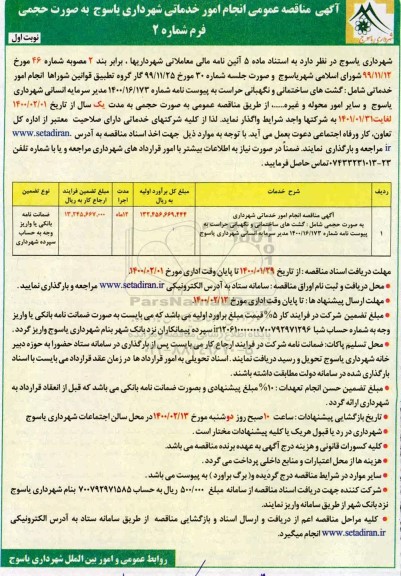 آگهی مناقصه عمومی انجام امور خدماتی شهرداری یاسوج به صورت حجمی
فرم شماره ۲
نوبت اول
شهرداری یاسوج در نظر دارد به استناد ماده ۵ آئین نامه مالی معاملاتی شهرداریها ، برابر بند ۲ مصوبه شماره ۴۶ مورخ
۹۹/۱۱/۱۲ شورای اسلامی شهریاسوج و صورت جلسه شماره ۳۰ مورخ ۹۹/۱۱/۲۵ کار گروه تطبیق قوانین شوراها انجام امور
خدماتی شامل : گشت های ساختمانی و نگهبانی حراست به پیوست نامه شماره ۱۴۰۰/۱۶/۱۷۳ مدیر سرمایه انسانی شهرداری
یاسوج و سایر امور محوله و غیره..... از طریق مناقصه عمومی به صورت حجمی به مدت یک سال از تاریخ ۱۴۰۰/۰۲/۰۱
لغایت ۱۴۰۱/۰۱/۳۱ به شرکتها واجد شرایط واگذار نماید. لذا از کلیه شرکتهای خدماتی دارای صلاحیت معتبر از اداره کل
تعاون، کار ورفاه اجتماعی دعوت بعمل می آید. با توجه به موارد ذیل جهت اخذ اسناد مناقصه به آدرس www.setadiran.
ir مراجعه و بارگذاری نمایند. ضمناً در صورت نیاز به اطلاعات بیشتر با امور قرارداد های شهرداری مراجعه و یا با شماره تلفن
۲۳-۰۷۴۳۳۲۲۳۱۳ تماس حاصل فرمایید.
ردیف شرح خدمات مبلغ کل برآورد اولیه به ریال مدت اجرا مبلغ تضمین فرایند ارجاع کار به ریال نوع تضمین
۱ آگهی مناقصه انجام امور خدماتی شهرداری
به صورت حجمی شامل : گشت های ساختمانی و نگهبانی حراست به
پیوست نامه شماره ۱۴۰۰/۱۶/۱۷۳ مدیر سرمایه انسانی شهرداری یاسوج
۱۲ماه
ضمانت نامه
بانکی یا واریز
وجه به حساب
سپرده شهرداری
مهلت دریافت اسناد مناقصه : از تاریخ ۱۴۰۰/۰۱/۲۹ تا پایان وقت اداری مورخ ۱۴۰۰/۰۲/۰۱.
محل دریافت و ثبت نام اوراق مناقصه: سامانه ستاد به آدرس الکترونیکی www.setadiran.ir مراجعه و بارگذاری نمایید.
مهلت ارسال پیشنهاد ها : تا پایان وقت اداری مورخ ۱۴۰۰/۰۲/۱۲
مبلغ تضمین شرکت در فرایند کار ۵% قیمت مبلغ برآورد اولیه می باشد که می بایست به صورت ضمانت نامه بانکی یا واریز
وجه به شماره حساب شبا سپرده پیمانکاران نزد بانک شهر بنام شهرداری یاسوج واریز گردد.
محل تسلیم پاکات: ضمانت نامه شرکت در فرایند ارجاع کار می بایست پس از بارگذاری در سامانه ستاد حضورا به حوزه دبیر
خانه شهرداری یاسوج تحویل و رسید دریافت نمایند . اسناد تحویلی به امور قرارداد ها در زمان عقد قرارداد می بایست با اسناد
بارگذاری شده در سامانه دولت مطابقت داشته باشند.
مبلغ تضمین حسن انجام تعهدات : ۱۰% مبلغ پیشنهادی و بصورت ضمانت نامه بانکی می باشد که قبل از انعقاد قرارداد به
شهرداری ارائه گردد .
تاریخ بازگشایی پیشنهادات : ساعت ۱۰ صبح روز دوشنبه مورخ ۱۴۰۰/۰۲/۱۳ در محل سالن اجتماعات شهرداری یاسوج
شهرداری در رد یا قبول هریک یا کلیه پیشنهادات مختار است .
کلیه کسورات قانونی و هزینه درج آگهی به عهده برنده مناقصه می باشد.
هزینه ها از محل اعتبارات و منابع داخلی پرداخت می گردد.
سایر موارد در شرایط مناقصه درج گردیده و( برگ برآورد ) به پیوست می باشد .
شرکت کننده جهت دریافت اسناد مناقصه از سامانه مبلغ ۵۰۰/۰۰۰ ریال به حساب ۷۰۰۷۹۲۹۷۱۵۸۵ بنام شهرداری یاسوج
نزد بانک شهر از طریق سامانه واریز نمایند.
کلیه مراحل مناقصه اعم از دریافت و ارسال اسناد و بازگشایی مناقصه از طریق سامانه ستاد به آدرس الکترونیکی
www.setadiran.ir انجام میگیرد.
روابط عمومی و امور بین الملل شهرداری یاسوج